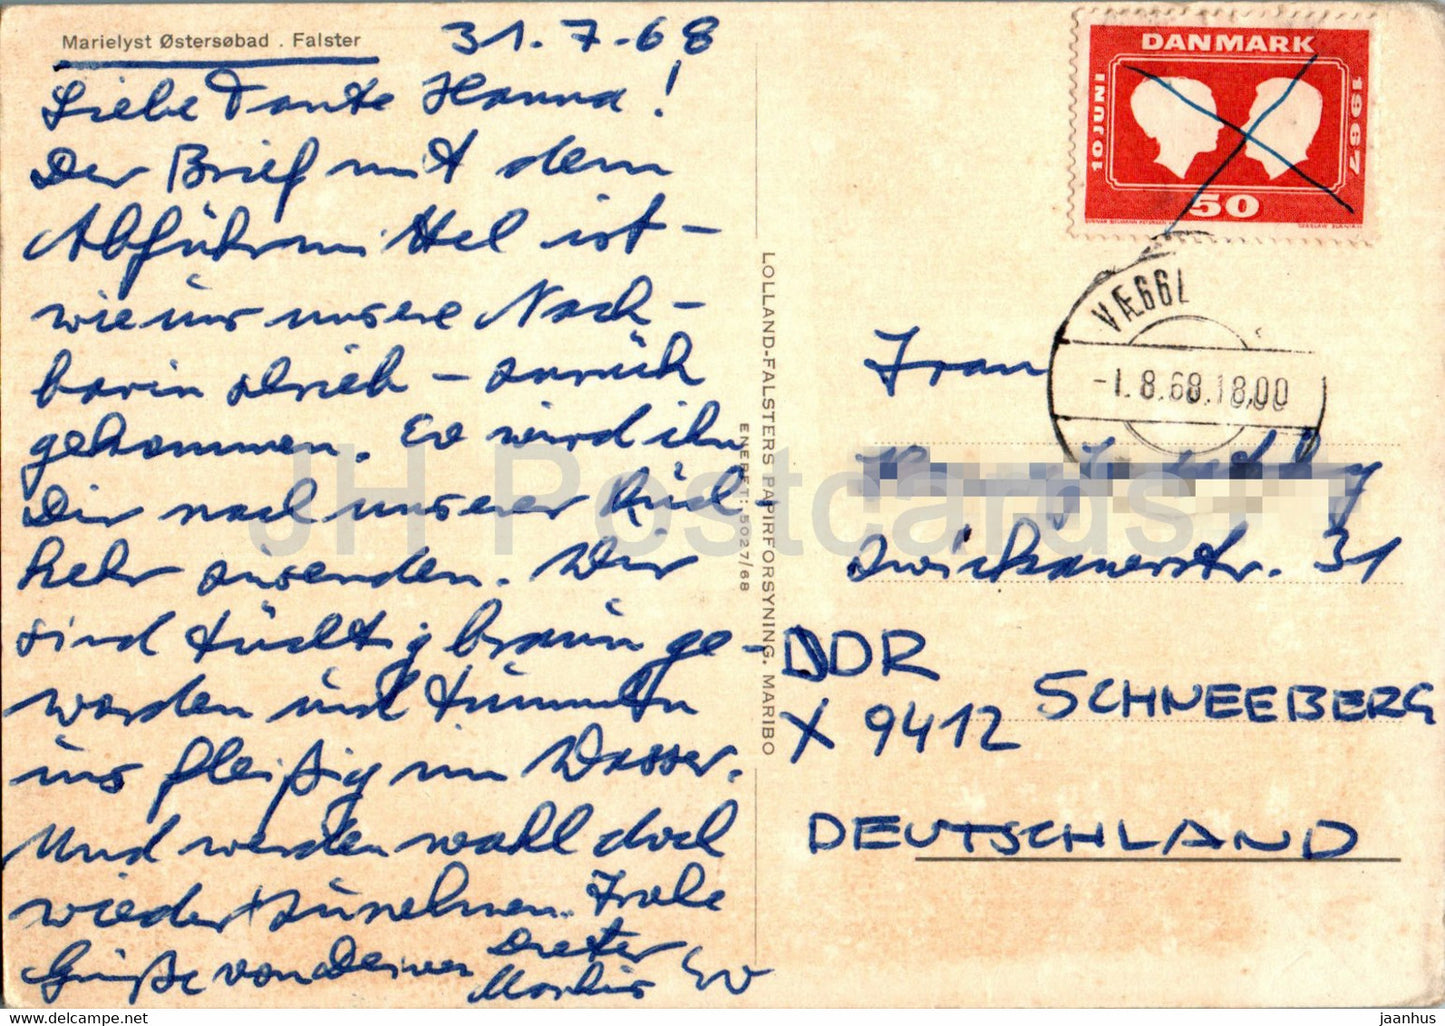 Marielyst Østersøbad . Falster
31.7.68
Liebe Tante Hanna!
Der Brief mit dem
Abführmittel ist -
wie uns unsere Nach-
barin schrieb - zurück
gekommen. Er wird ihn
Dir nach unserer Rück-
kehr zusenden. Wir
sind tüchtig braun ge-
worden und tummeln
uns fleißig im Wasser.
Und werden wohl doch
wieder zunehmen. Frohe
Grüße von Deinen Dieter
Markus
LOLLAND-FALSTERS PAPIRFORSYNING. MARIBO
ENERET: 5027/68
DANMARK
10 JUNI
1967
50
VÆGGL
-1.8.68.18.00
Frau
Zwickauerstr. 31
DDR
X 9412 SCHNEEBERG
DEUTSCHLAND
JH Postcards
jaanhus — myshopify.com